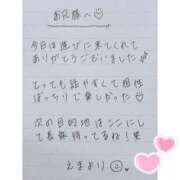 お兄様へ♡
今日は遊びに来てくれて
ありがとうございました
とっても話やすくて相性
ばっちりで楽しかった☺
次の目的地はここにして
長無待ってるね！笑
えまより☺